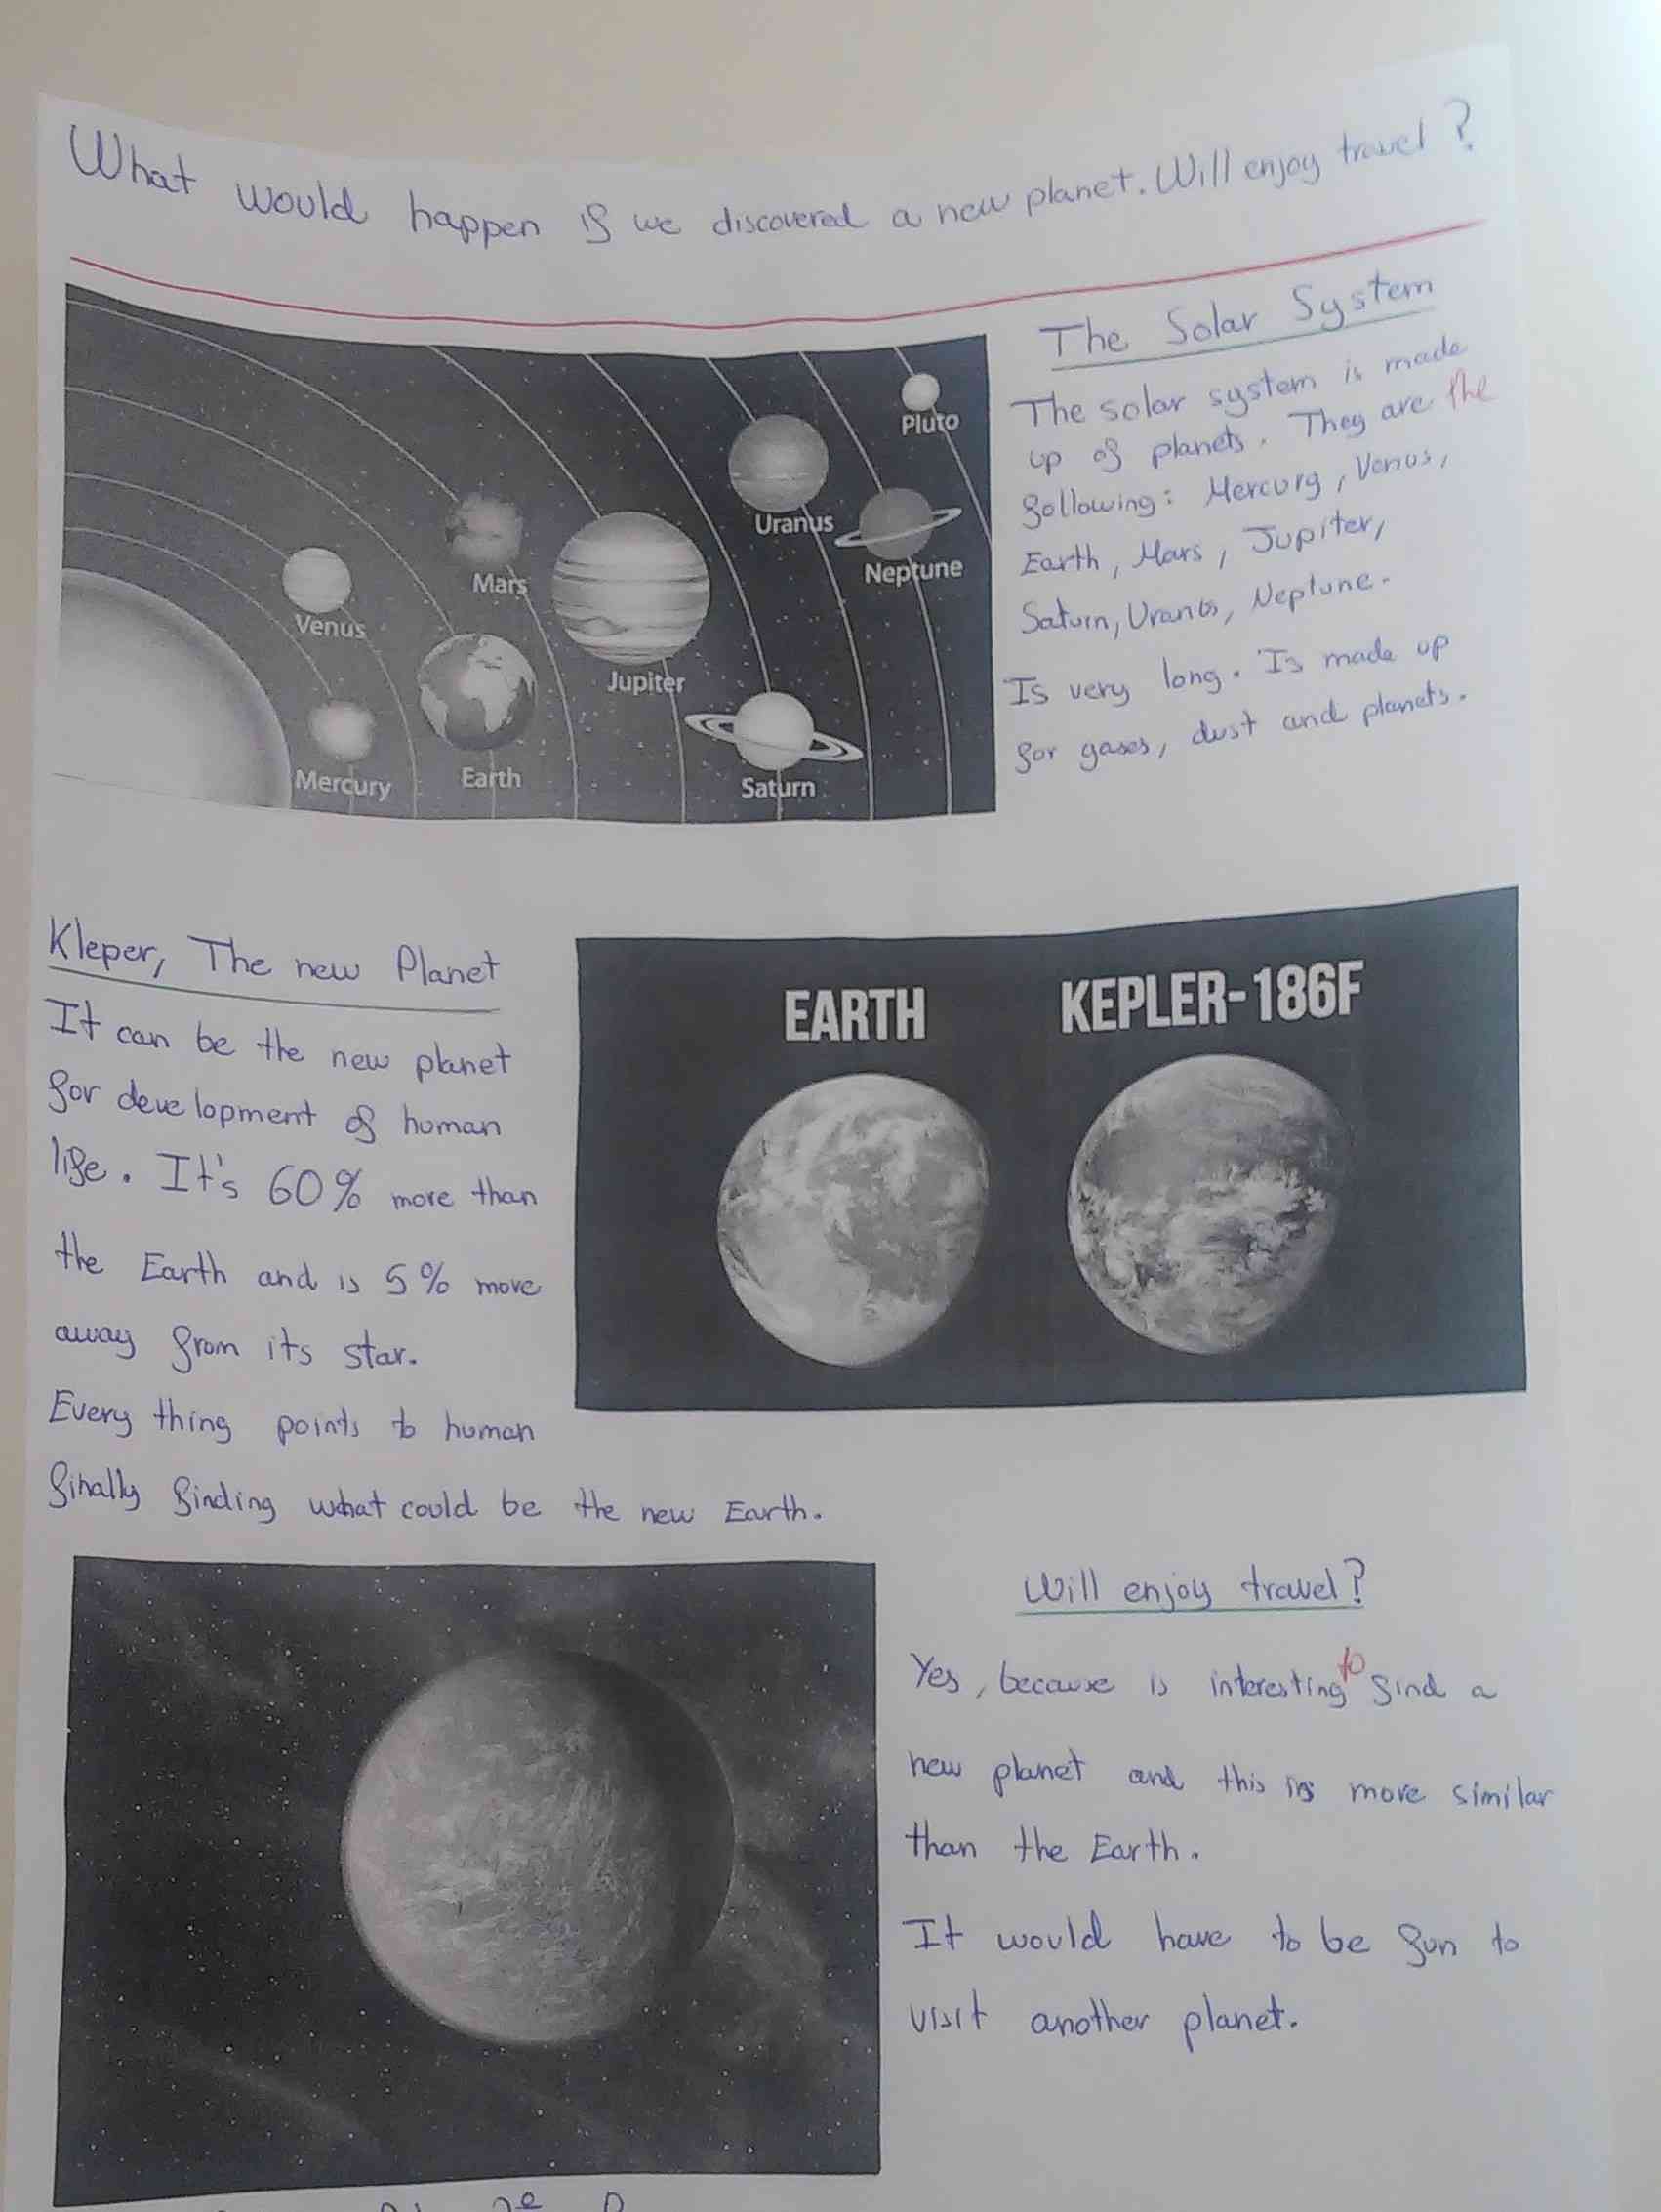 What would happen if we discovered a new planet. Will enjoy travel?
The Solar System
The solar system is made
up of planets. They are the
following: Mercury, Venus,
Earth, Mars, Jupiter,
Saturn, Uranus, Neptune.
Is very long. Is made up
for gases, dust and planets.
Pluto
Uranus
Neptune
Mars
Venus
Jupiter
Mercury
Earth
Saturn
Kleper, The new Planet
It can be the new planet
for development of human
life. It's 60% more than
the Earth and is 5% more
away from its star.
Every thing points to human
finally finding what could be the new Earth.
EARTH
KEPLER-186F
Will enjoy travel?
Yes, because is interesting to find a
new planet and this is more similar
than the Earth.
It would have to be fun to
visit another planet.